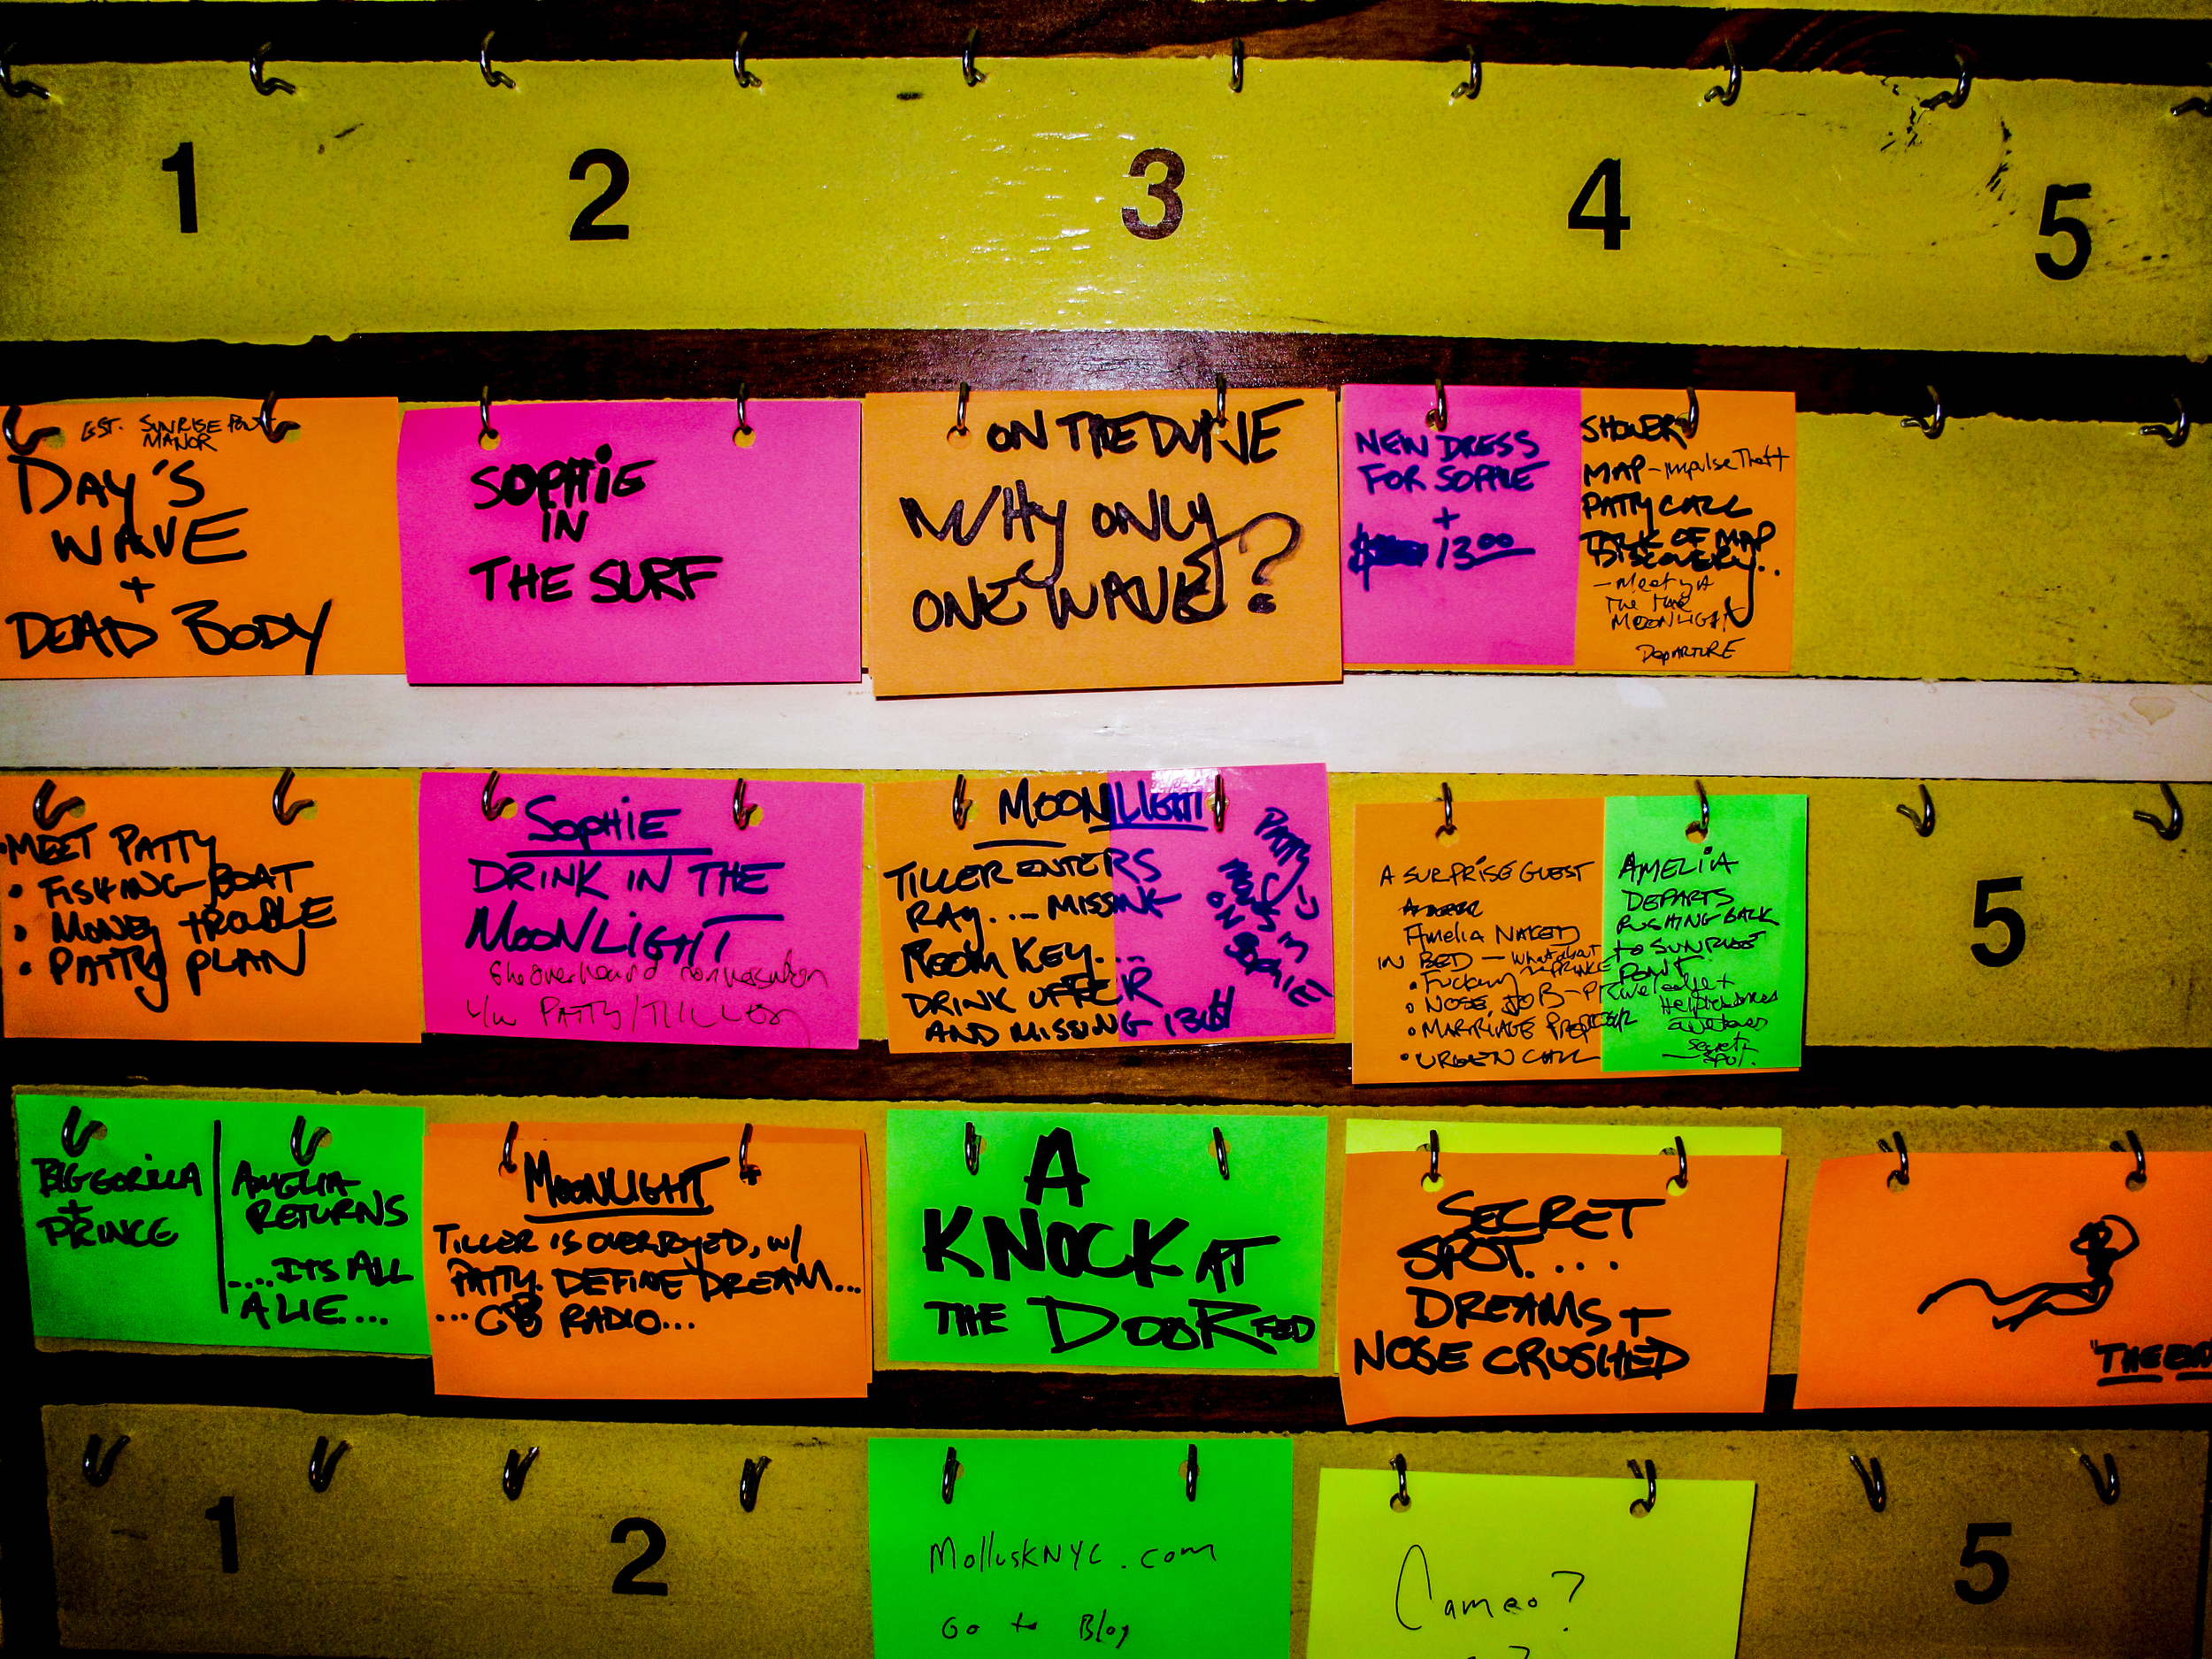 1
2
3
4
5
EST. SUNRISE POINT
MANOR
DAY'S
WAVE
+
DEAD BODY
SOPHIE
IN
THE SURF
ON THE DUNE
WHY ONLY
ONE WAVE?
NEW DRESS
FOR SOPHIE
+
13.00
SHOWER
MAP - Impulse Theft
PATTY CALL
TALK OF MAP
DISCOVERY..
- Meet
The
MOONLIGHT
DEPARTURE
• MEET PATTY
• FISHING BOAT
• MONEY TROUBLE
• PATTY PLAN
SOPHIE
DRINK IN THE
MOONLIGHT
She overheard conversation
PATTY/TILLER
MOONLIGHT
TILLER ENTERS
RAY... MISSING
ROOM KEY...
DRINK OFFER
AND MISSING
PATTY
MOVES IN
ON SOPHIE
A SURPRISE GUEST
Amelia NAKED
IN BED - what about
• Fucking PRINCE
• NOSE JOB -
• MARRIAGE
• URGENT CALL
AMELIA
DEPARTS
RUSHING BACK
TO SUNRISE
POINT
secret
spot.
5
BIG GORILLA
+
PRINCE
AMELIA
RETURNS
....ITS ALL
A LIE...
MOONLIGHT
TILLER IS OVERJOYED, W/
PATTY. DEFINE DREAM...
...CB RADIO...
A
KNOCK AT
THE DOOR
SECRET
SPOT....
DREAMS +
NOSE CRUSHED
1
2
MolluskNYC.com
Go to Blog
Cameo?
5